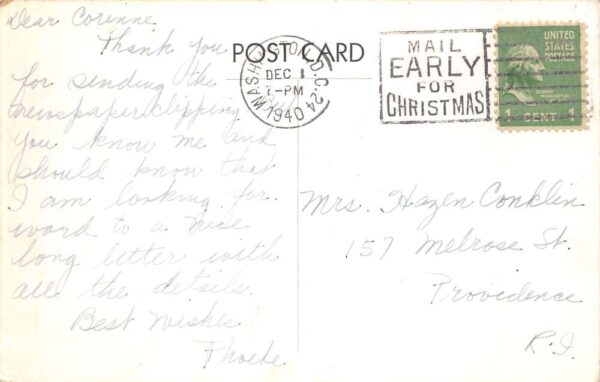 Dear Corinne
Thank you
for sending the
newspaper clipping but
you know me and
should know that
I am looking for-
ward to a nice
long letter with
all the details.
Best Wishes
Phoebe
POST CARD
WASHINGTON, D.C. 24
DEC 1
7-PM
1940
MAIL
EARLY
FOR
CHRISTMAS
UNITED
STATES
POSTAGE
GEORGE
WASHINGTON
1 CENT 1
Mrs. Hazen Conklin
157 Melrose St.
Providence
R.I.